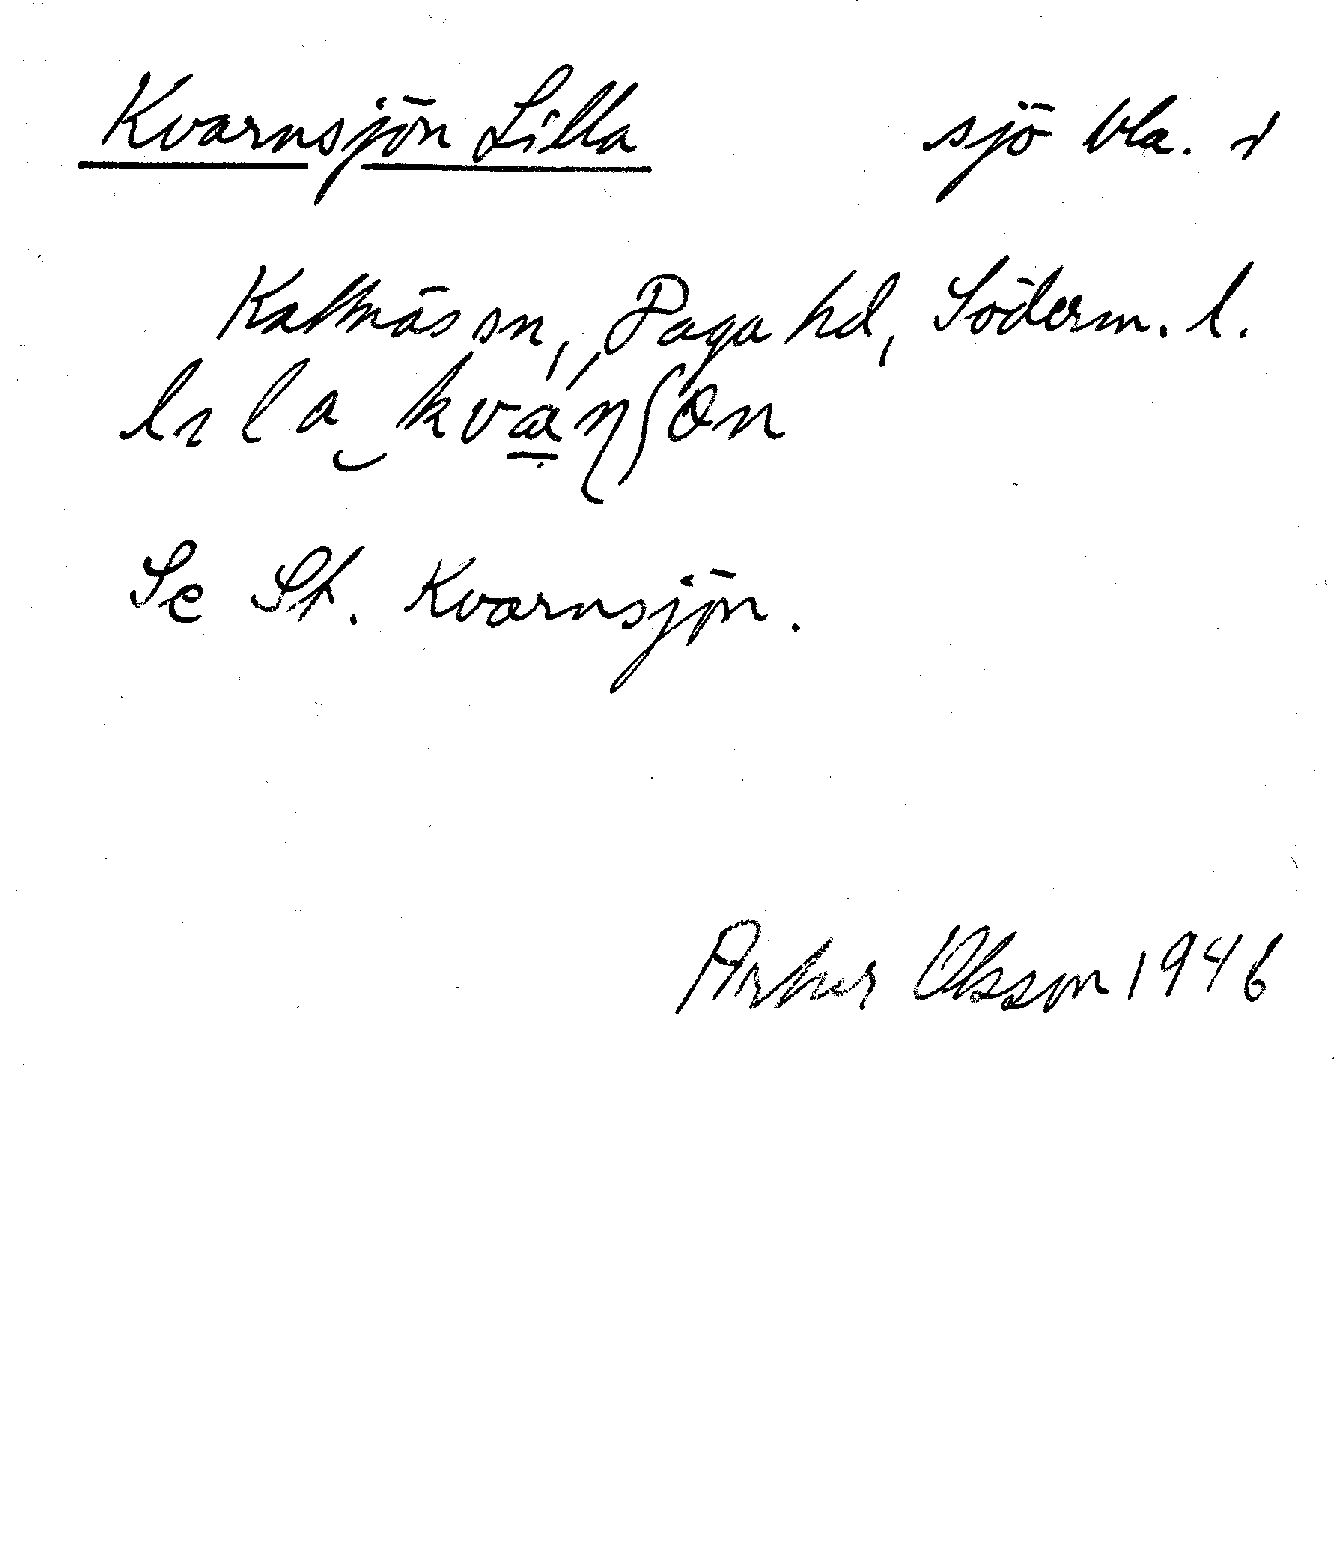 Kvarnsjön Lilla sjö bla. i
Kattnäs sn, Daga hd, Söderm. l.
lɩla‿kvánʃön
Se St. Kvarnsjön.
Arthur Olsson 1946